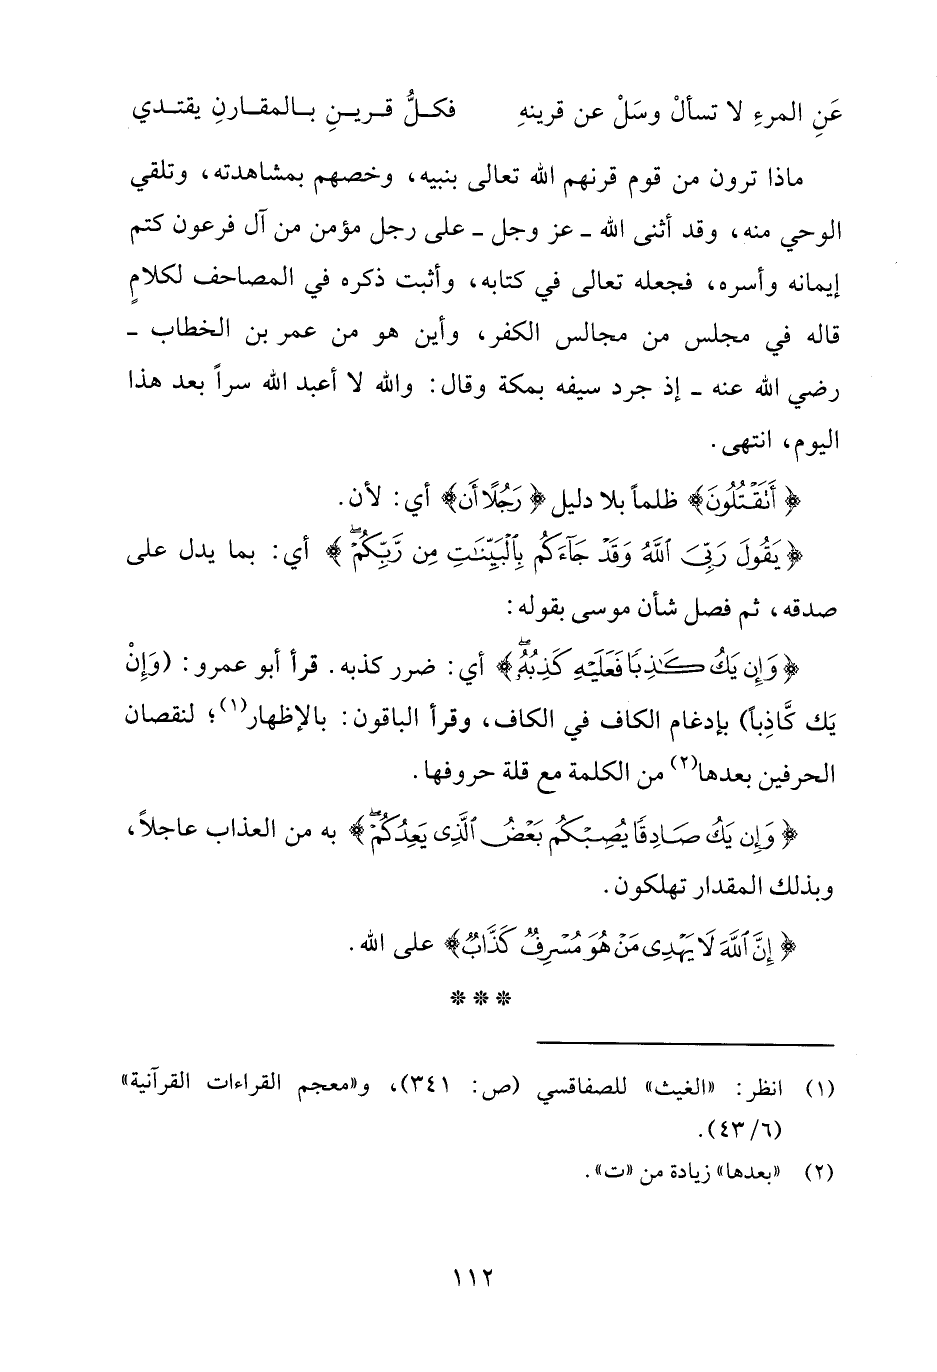 عَنِ المرءِ لا تسألْ وسَلْ عن قرينهِ فكـلُّ قـريـنٍ بـالمقـارنِ يقتـدي
ماذا ترون من قوم قرنهم الله تعالى بنبيه، وخصهم بمشاهدته، وتلقي
الوحي منه، وقد أثنى الله ـ عز وجل ـ على رجل مؤمن من آل فرعون كتم
إيمانه وأسره، فجعله تعالى في كتابه، وأثبت ذكره في المصاحف لكلامٍ
قاله في مجلس من مجالس الكفر، وأين هو من عمر بن الخطاب ـ
رضي الله عنه ـ إذ جرد سيفه بمكة وقال: والله لا أعبد الله سراً بعد هذا
اليوم، انتهى.
﴿أَتَقْتُلُونَ﴾ ظلماً بلا دليل ﴿رَجُلًا أَن﴾ أي: لأن.
﴿يَقُولَ رَبِّيَ ٱللَّهُ وَقَدْ جَآءَكُم بِٱلْبَيِّنَٰتِ مِن رَّبِّكُمْۖ﴾ أي: بما يدل على
صدقه، ثم فصل شأن موسى بقوله:
﴿وَإِن يَكُ كَٰذِبًا فَعَلَيْهِ كَذِبُهُۥۖ﴾ أي: ضرر كذبه. قرأ أبو عمرو: (وَإِنْ
يَك كَّاذِباً) بإدغام الكاف في الكاف، وقرأ الباقون: بالإظهار(١)؛ لنقصان
الحرفين بعدها(٢) من الكلمة مع قلة حروفها.
﴿وَإِن يَكُ صَادِقًا يُصِبْكُم بَعْضُ ٱلَّذِى يَعِدُكُمْۖ﴾ به من العذاب عاجلاً،
وبذلك المقدار تهلكون.
﴿إِنَّ ٱللَّهَ لَا يَهْدِى مَنْ هُوَ مُسْرِفٌ كَذَّابٌ﴾ على الله.
* * *
(١) انظر: «الغيث» للصفاقسي (ص: ٣٤١)، و«معجم القراءات القرآنية»
(٦/ ٤٣).
(٢) «بعدها» زيادة من «ت».
١١٢